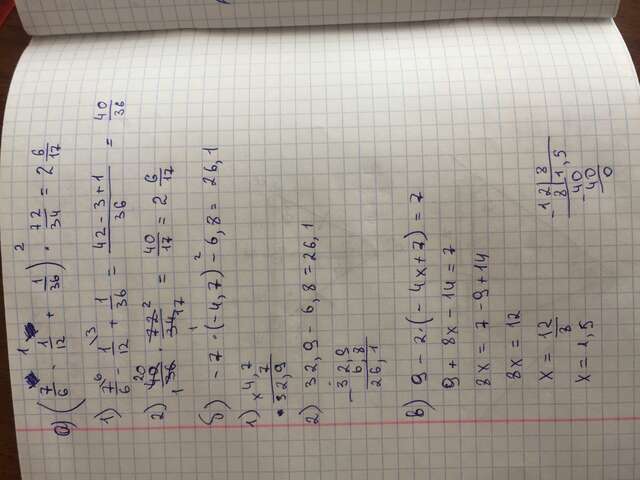 а) (7/6 - 1/12 + 1/36) · 72/34 = 2 6/17
1) 7/6 - 1/12 + 1/36 = (42 - 3 + 1)/36 = 40/36
2) 40/36 · 72/34 = 40/17 = 2 6/17
б) -7 · (-4,7) - 6,8 = 26,1
1) × 4,7
7
32,9
2) 32,9 - 6,8 = 26,1
- 32,9
6,8
26,1
в) 9 - 2 · (-4x + 7) = 7
9 + 8x - 14 = 7
8x = 7 - 9 + 14
8x = 12
x = 12/8
x = 1,5
- 12 | 8
8 | 1,5
- 40
40
0